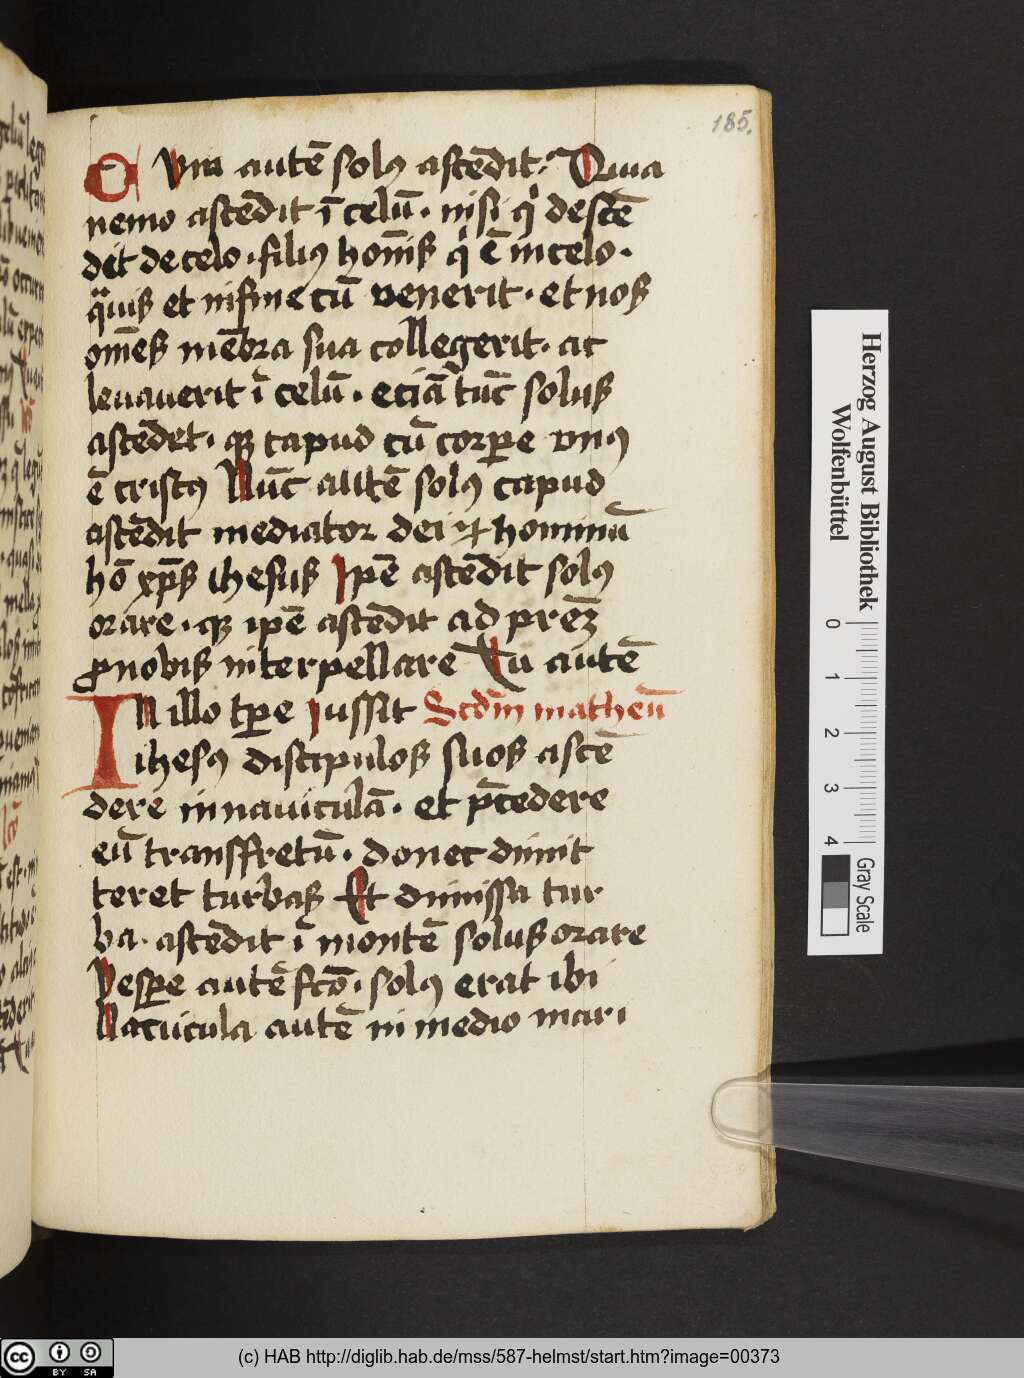 185.
C Vm autē solꝰ ascēdit. Quia
nemo ascēdit ī celū. nisi qͥ descē
dit de celo. filiꝰ homīs qͥ ē in celo.
qᷓuis et in fine cū venerit. et nos
om̄es mēbra sua collegerit. ac
leuauerit ī celū. eciā tūc solus
ascēdet. qꝫ capud cū corꝑe vnꝰ
ē cristꝰ Nūc autē solꝰ capud
ascēdit mediator dei ⁊ hominū
hō xp̄s ihesus Ip̄e ascēdit solꝰ
orare. qꝫ ip̄e ascēdit ad pr̄eꝫ
ꝓ nobis interpellare Tu autē
IN illo tꝑe Iussit Scdm̄ matheū
ihesꝰ discipulos suos ascē
dere in nauiculā. et p̄cedere
eū transfretū. donec dimit
teret turbas Et dimissa tur
ba. ascēdit ī montē solus orare
Vesꝑe autē fcō. solꝰ erat ibi
Nauicula autē in medio mari
Herzog August Bibliothek
Wolfenbüttel
0 1 2 3 4
Gray Scale
cc BY SA
(c) HAB http://diglib.hab.de/mss/587-helmst/start.htm?image=00373